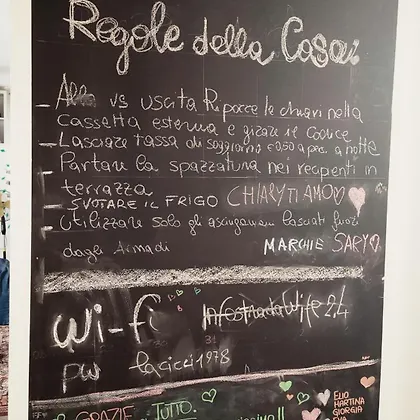 Regole della Casa:
Alla vs uscita Riporre le chiavi nella
cassetta esterna e girare il codice
Lasciare tassa di soggiorno €0,50 a pers. a notte
Portare la spazzatura nei recipienti in
terrazza
SVOTARE IL FRIGO CHIARY TI AMO
Utilizzare solo gli asciugamani lasciati fuori
dagli Armadi
MARCHIE SARY
Wi-fi InfostradaWifi 2.4
PW lacicci1978
GRAZIE TUTTO.
ELIO
MARTINA
GIORGIA
EVA